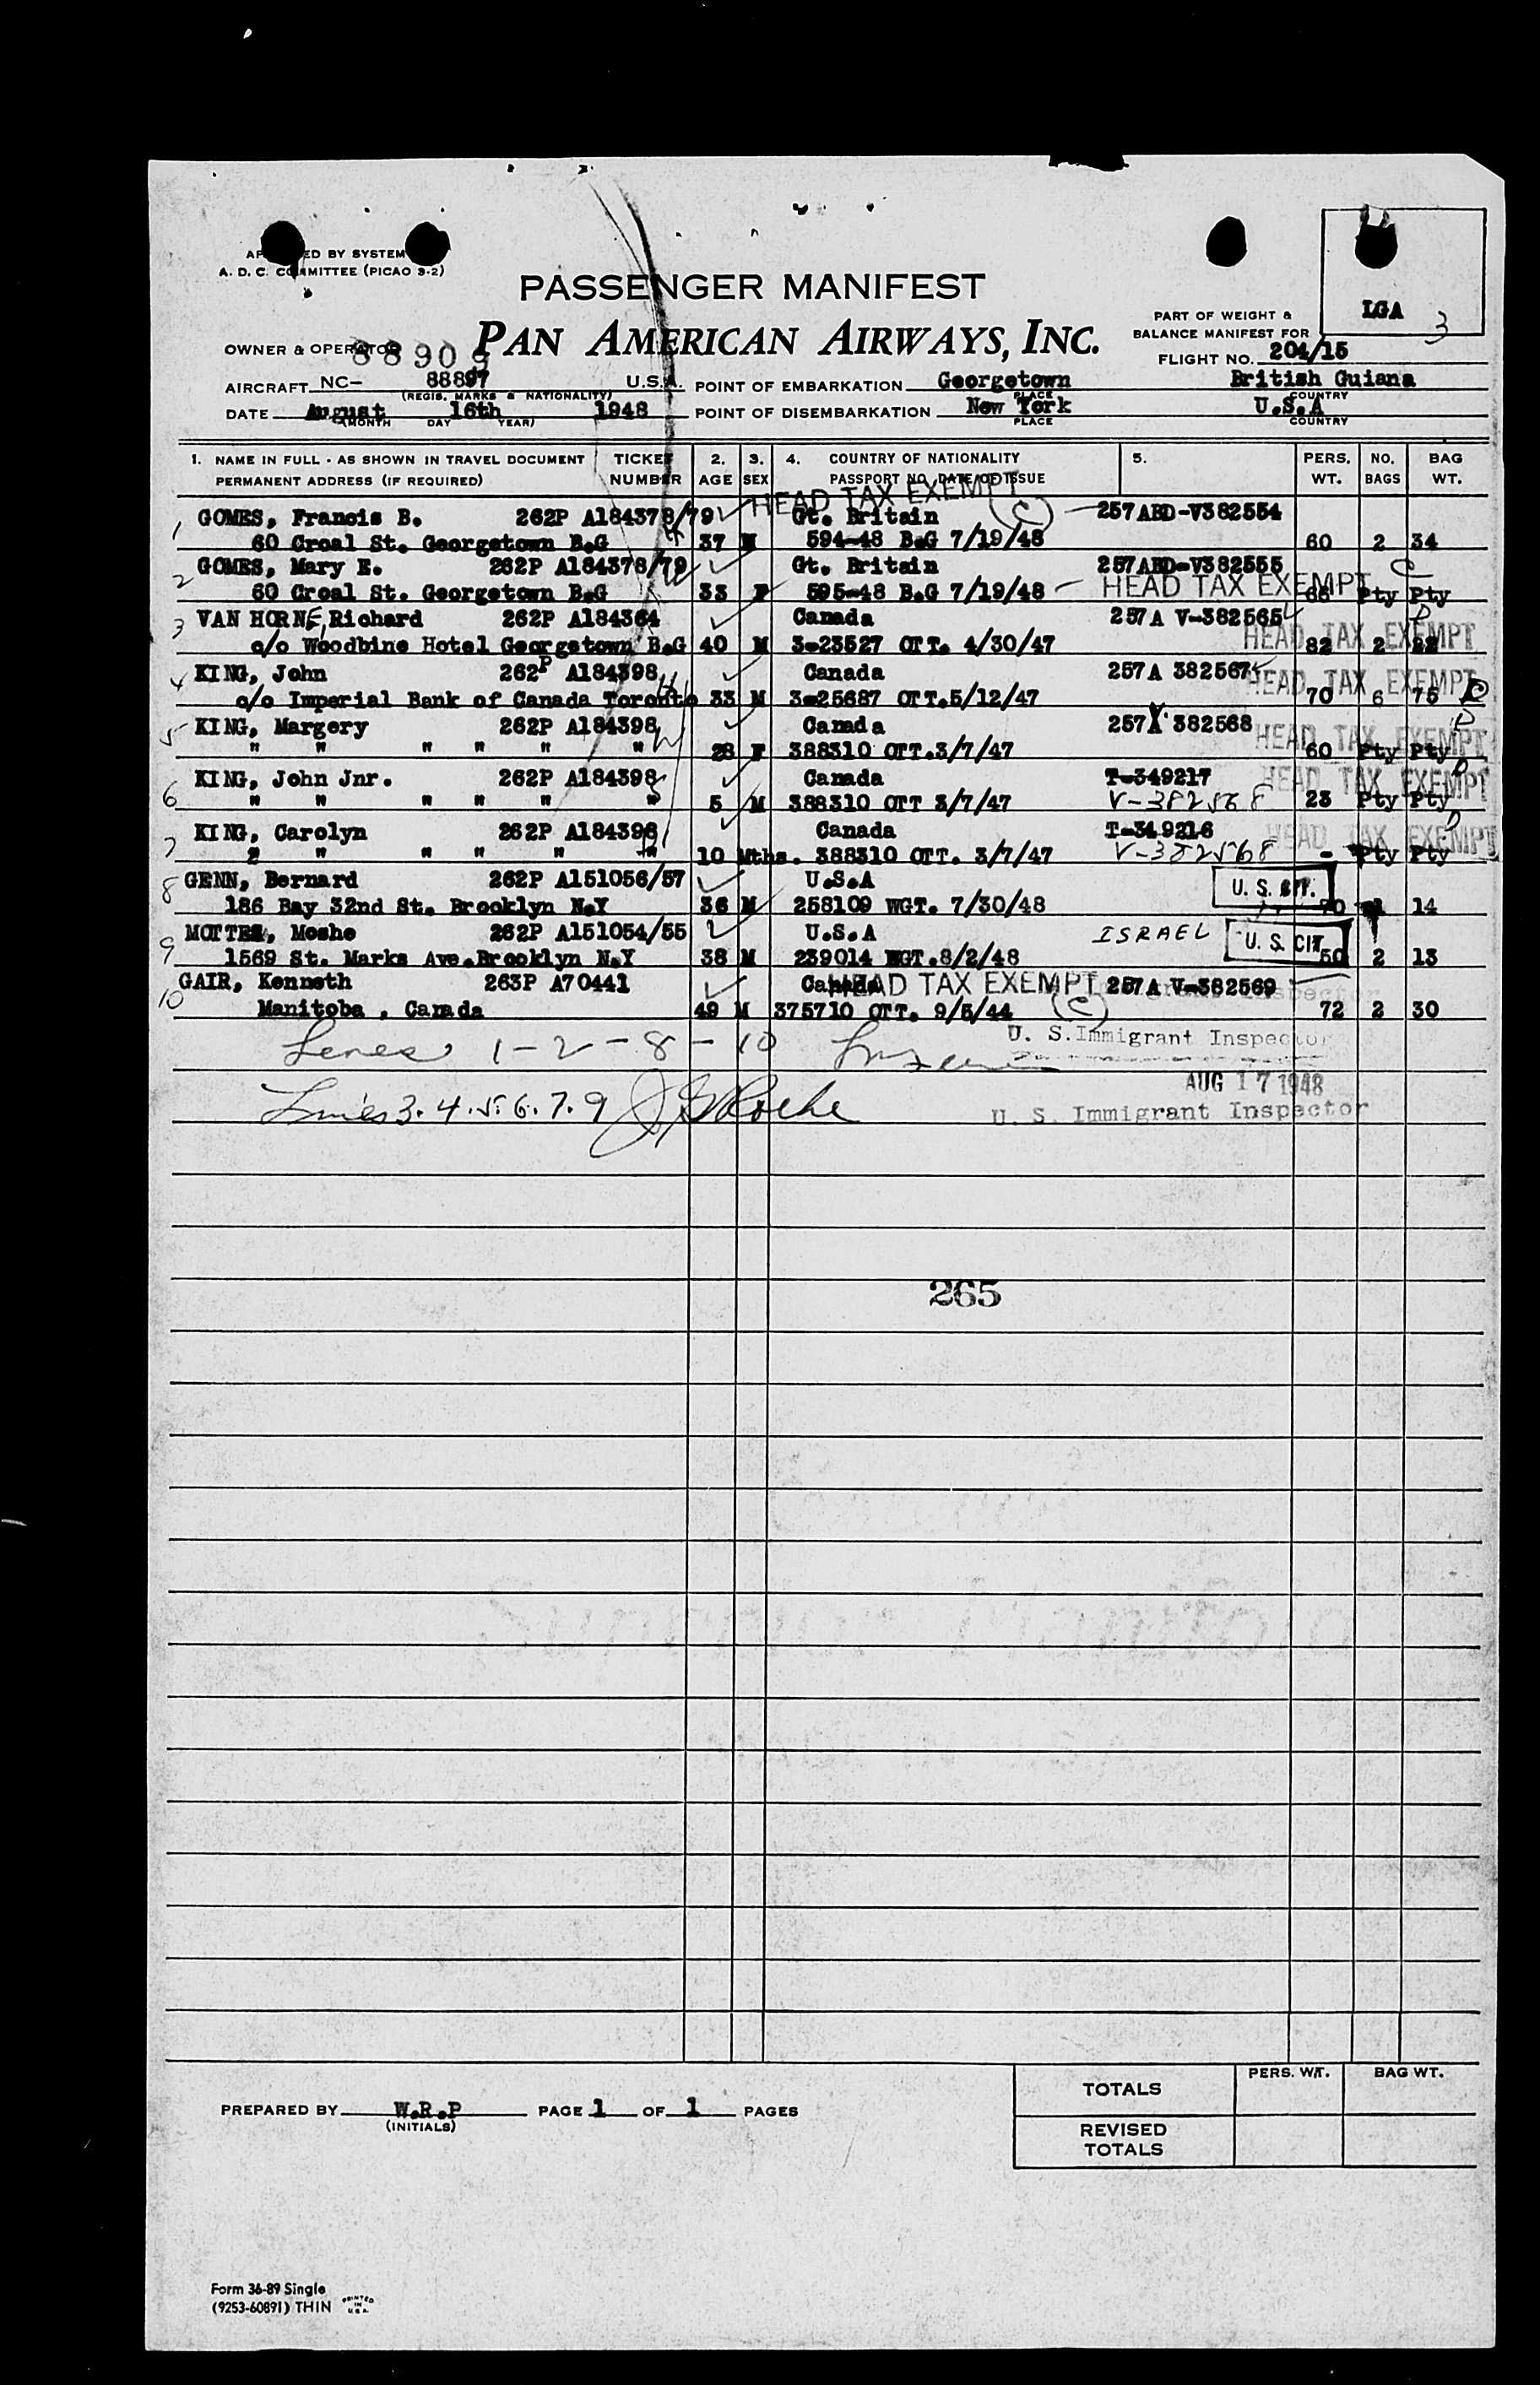 BY SYSTEM
A. D. C. COMMITTEE (PICAO 3-2)
PASSENGER MANIFEST
PAN AMERICAN AIRWAYS, INC.
LGA 3
PART OF WEIGHT &
BALANCE MANIFEST FOR
FLIGHT NO. 204/15
OWNER & OPERATOR
AIRCRAFT NC- 88897 U.S.A. POINT OF EMBARKATION Georgetown British Guiana
(REGIS. MARKS & NATIONALITY) PLACE COUNTRY
DATE August 16th 1948 POINT OF DISEMBARKATION New York U.S.A
(MONTH DAY YEAR) PLACE COUNTRY
1. NAME IN FULL - AS SHOWN IN TRAVEL DOCUMENT TICKET 2. 3. 4. COUNTRY OF NATIONALITY 5. PERS. NO. BAG
PERMANENT ADDRESS (IF REQUIRED) NUMBER AGE SEX PASSPORT NO. DATE OF ISSUE WT. BAGS WT.
HEAD TAX EXEMPT
1 GOMES, Francis B. 262P A184378/79 Gt. Britain (C) 257ABD-V382554
60 Croal St. Georgetown B.G 37 M 594-48 B.G 7/19/48 60 2 34
2 GOMES, Mary E. 262P A184378/79 Gt. Britain 257ABD-V382555 C
60 Croal St. Georgetown B.G 33 F 595-48 B.G 7/19/48 HEAD TAX EXEMPT Pty Pty
3 VAN HORNE, Richard 262P A184364 Canada 257A V-382565 D
c/o Woodbine Hotel Georgetown B.G 40 M 3-23527 OTT. 4/30/47 HEAD TAX EXEMPT 82 2 22
4 KING, John 262P A184398 Canada 257A 382567 HEAD TAX EXEMPT
c/o Imperial Bank of Canada Toronto 33 M 3-25687 OTT.5/12/47 70 6 75 D
5 KING, Margery 262P A184398 Canada 257 382568 HEAD TAX EXEMPT D
" " " " " " 28 F 388310 OTT.3/7/47 60 Pty Pty
6 KING, John Jnr. 262P A184398 Canada T-349217 HEAD TAX EXEMPT D
" " " " " " 5 M 388310 OTT 3/7/47 V-382568 23 Pty Pty
7 KING, Carolyn 262P A184398 Canada T-349216 HEAD TAX EXEMPT D
" " " " " " 10 Mths. 388310 OTT. 3/7/47 V-382568 - Pty Pty
8 GENN, Bernard 262P A151056/57 U.S.A U. S. CIT.
186 Bay 32nd St. Brooklyn N.Y 36 M 258109 WGT. 7/30/48 70 1 14
9 Moshe 262P A151054/55 U.S.A ISRAEL U. S. CIT.
1569 St. Marks Ave.Brooklyn N.Y 38 M 239014 WGT.8/2/48 50 2 13
10 GAIR, Kenneth 263P A70441 Canada HEAD TAX EXEMPT 257A V-382569
Manitoba , Canada 49 M 375710 OTT. 9/5/44 (C) 72 2 30
Lines 1-2-8-10 U. S. Immigrant Inspector
AUG 17 1948
Lines 3. 4. 5. 6. 7. 9 J Roche U. S. Immigrant Inspector
265
PREPARED BY W.R.P PAGE 1 OF 1 PAGES
(INITIALS)
PERS. WT. BAG WT.
TOTALS
REVISED
TOTALS
Form 36-89 Single
(9253-60891) THIN PRINTED IN U.S.A.